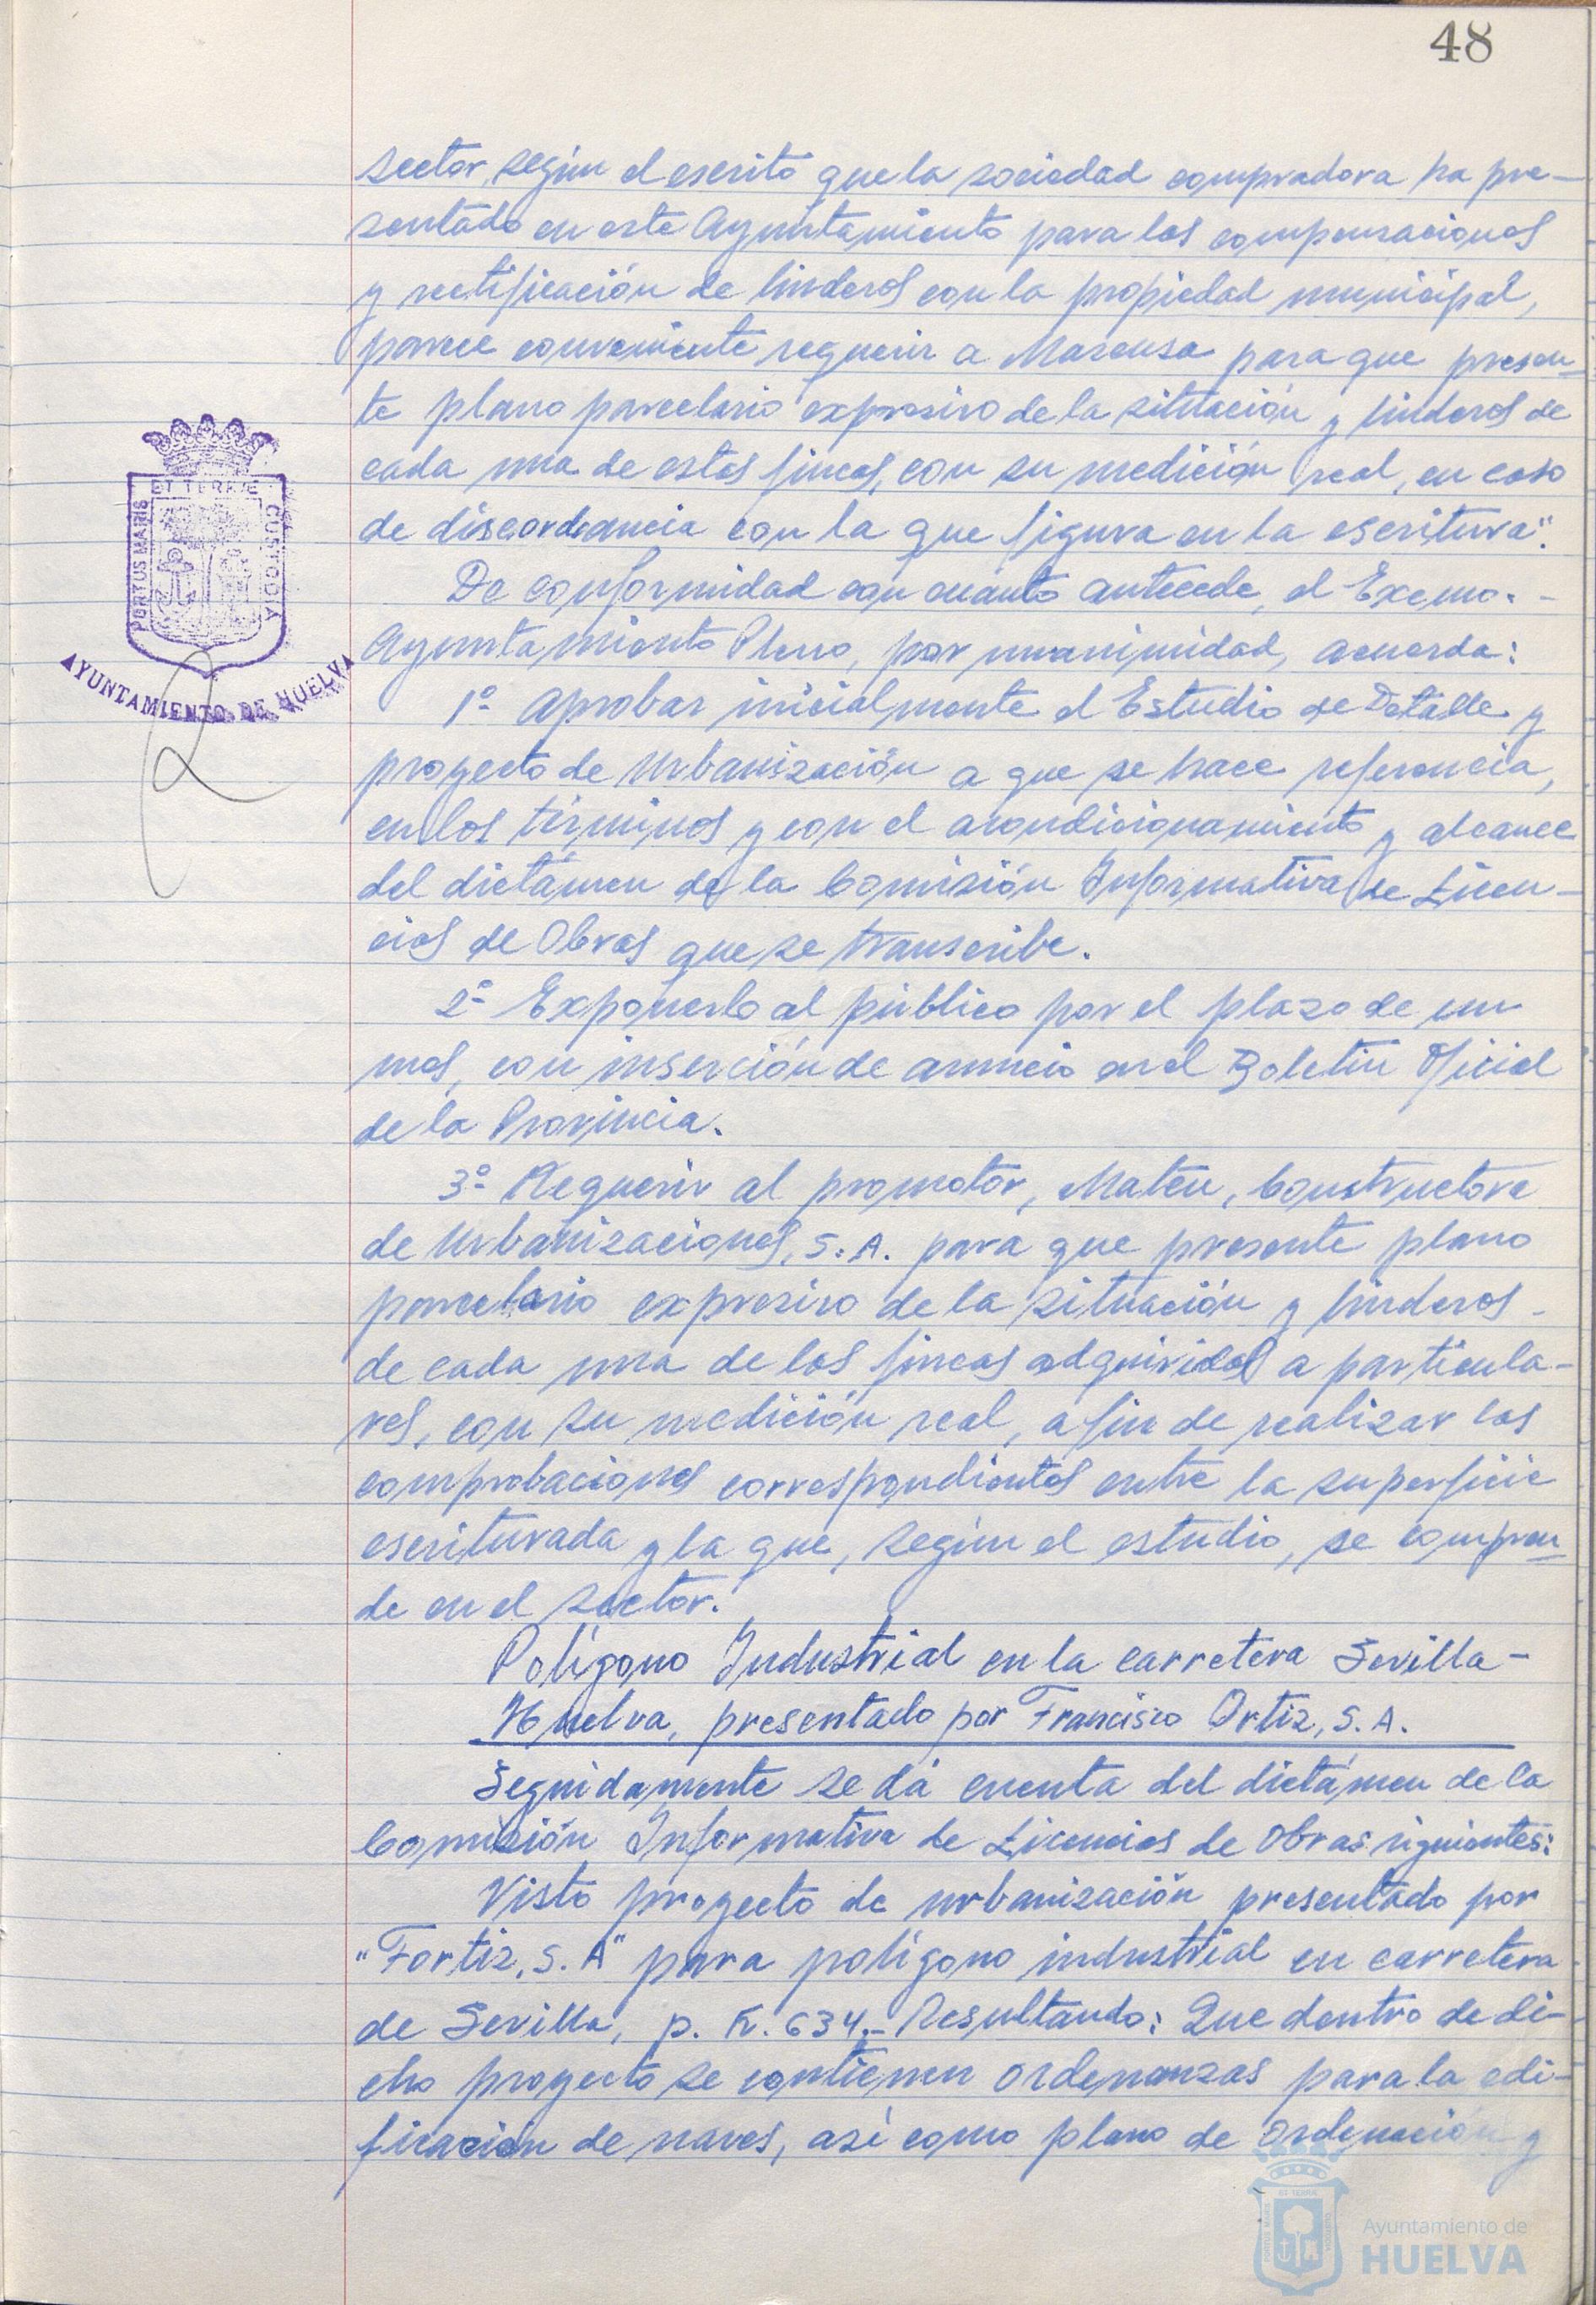 48
sector, según el escrito que la sociedad compradora ha pre-
sentado en este Ayuntamiento para las compensaciones
y rectificación de linderos con la propiedad municipal,
parece conveniente requerir a Macunsa para que presen-
te plano parcelario expresivo de la situación y linderos de
cada una de estas fincas, con su medición real, en caso
de discordancia con la que figura en la escritura".
De conformidad con cuanto antecede, el Excmo. -
Ayuntamiento Pleno, por unanimidad, acuerda:
1º Aprobar inicialmente el Estudio de Detalle y
proyecto de Urbanización a que se hace referencia,
en los términos y con el acondicionamiento y alcance
del dictámen de la Comisión Informativa de Licen-
cias de Obras que se transcribe.
2º Exponerlo al público por el plazo de un
mes, con inserción de anuncio en el Boletín Oficial
de la Provincia.
3º Requerir al promotor, Mateu, Constructora
de Urbanizaciones, S.A. para que presente plano
parcelario expresivo de la situación y linderos -
de cada una de las fincas adquiridas a particula-
res, con su medición real, a fin de realizar las
comprobaciones correspondientes entre la superficie
escriturada y la que, según el estudio, se compren-
de en el sector.
Polígono Industrial en la carretera Sevilla-
Huelva, presentado por Francisco Ortiz, S.A.
Seguidamente se dá cuenta del dictámen de la
Comisión Informativa de Licencias de Obras siguientes:
Visto proyecto de urbanización presentado por
"Fortiz, S.A" para polígono industrial en carretera
de Sevilla, p. K. 634.- Resultando: Que dentro de di-
cho proyecto se contienen ordenanzas para la edi-
ficación de naves, así como plano de ordenación y
PORTUS MARIS
ET TERRAE
CUSTODIA
AYUNTAMIENTO DE HUELVA
Ayuntamiento de
HUELVA